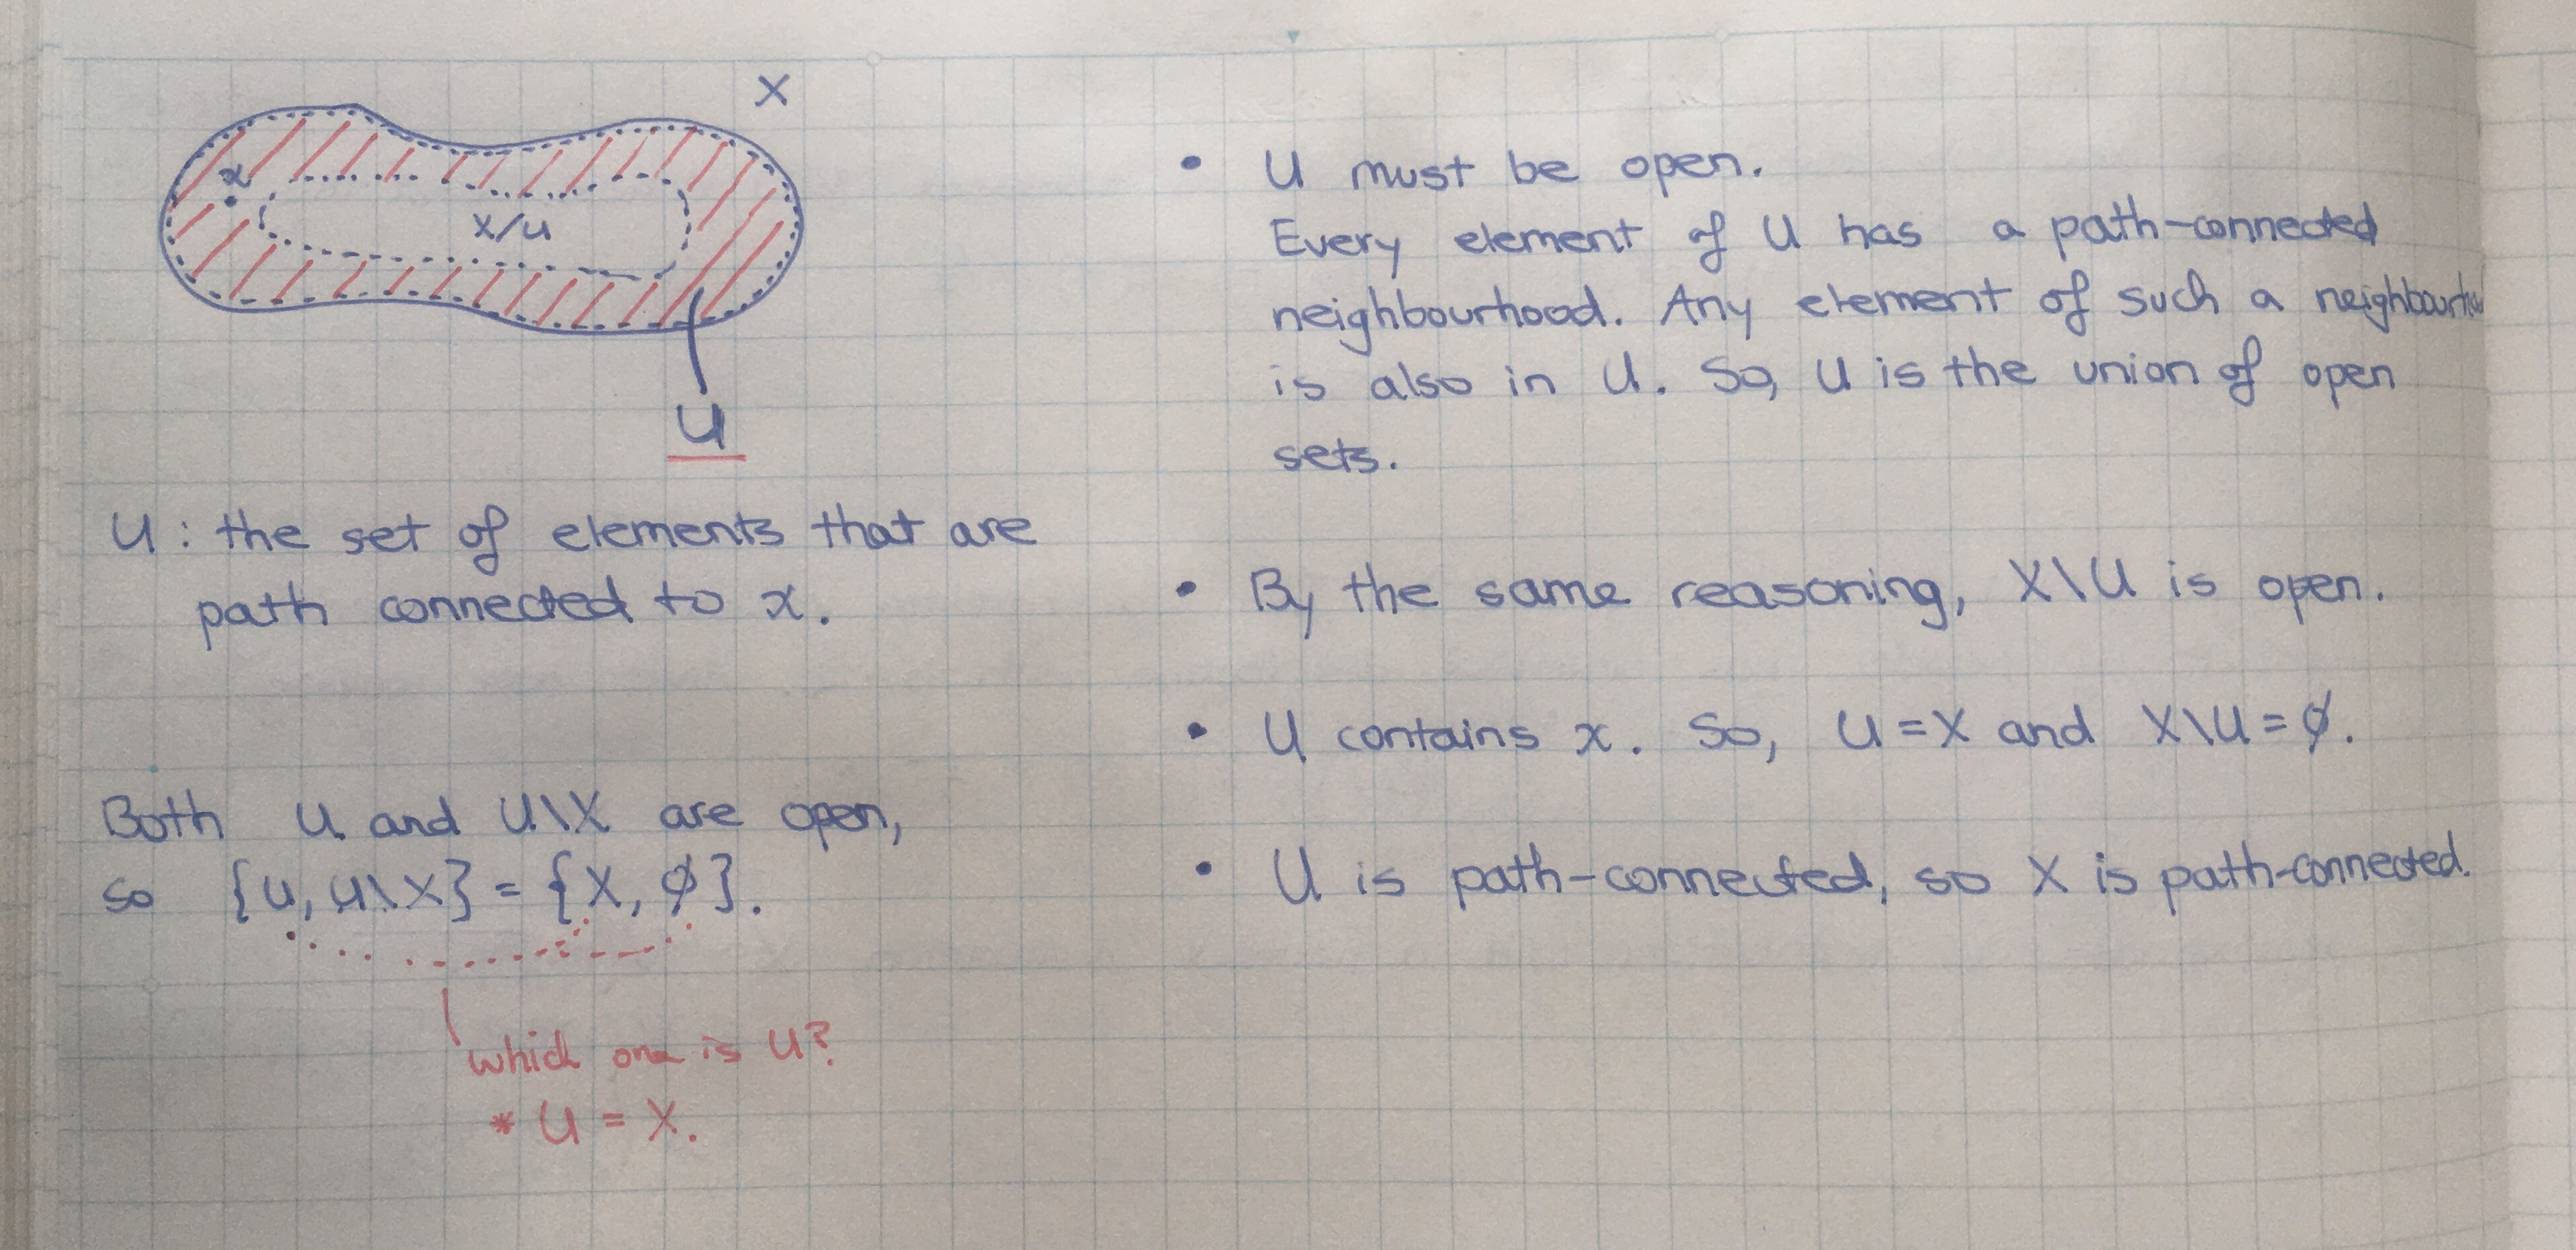 X
x
X/U
U
U : the set of elements that are
path connected to x.
Both U and U\X are open,
so {U, U\X} = {X, ∅}.
which one is U?
* U = X.
• U must be open.
Every element of U has a path-connected
neighbourhood. Any element of such a
is also in U. So, U is the union of open
sets.
• By the same reasoning, X\U is open.
• U contains x. So, U = X and X\U = ∅.
• U is path-connected, so X is path-connected.